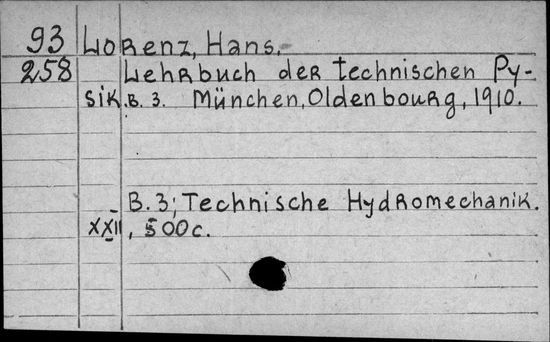 93 Lorenz, Hans.
258 Lehrbuch der technischen Py-
sik. B. 3. München, Oldenbourg, 1910.
B. 3; Technische Hydromechanik.
XXII, 500 c.